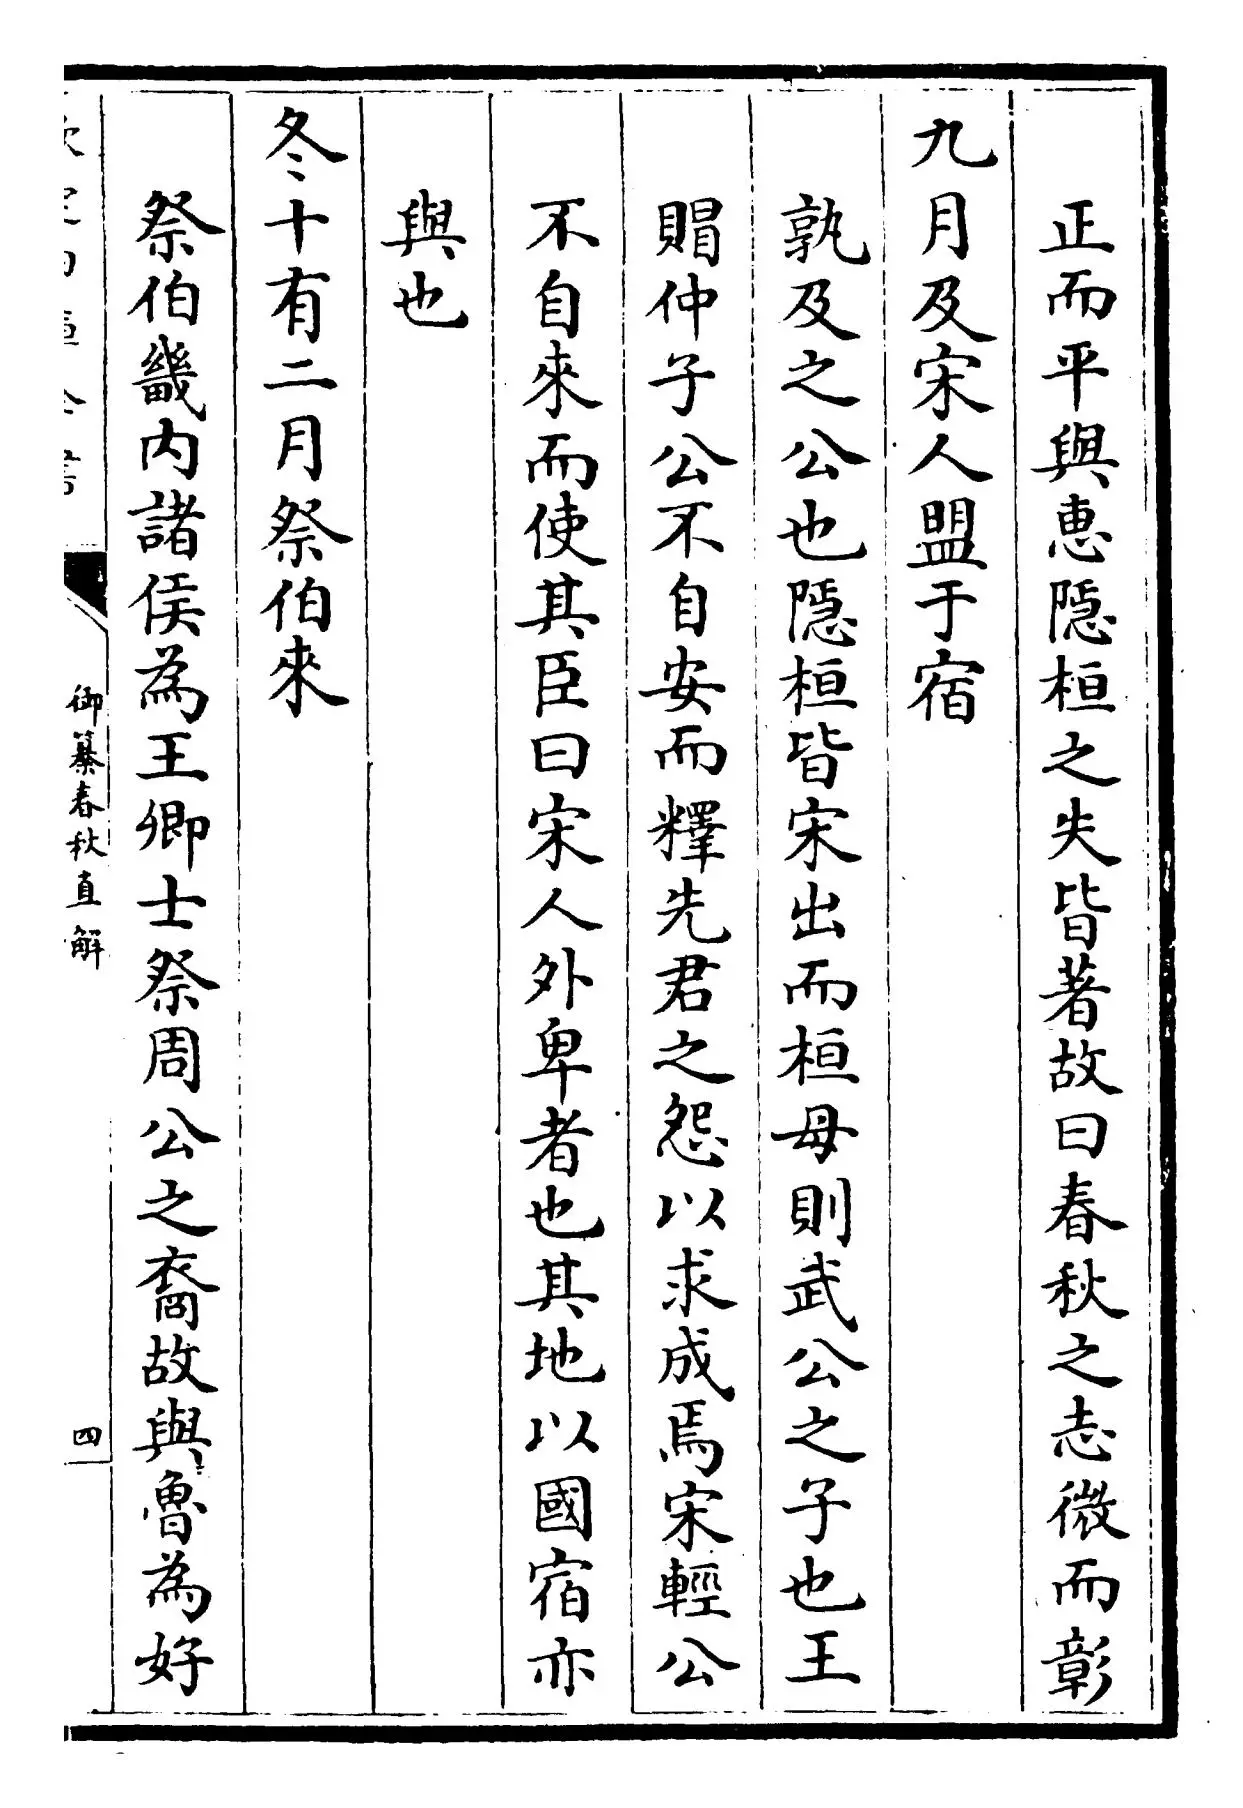 正而平與惠隱桓之失皆著故曰春秋之志微而彰
九月及宋人盟于宿
孰及之公也隱桓皆宋出而桓母則武公之子也王
賵仲子公不自安而釋先君之怨以求成焉宋輕公
不自來而使其臣曰宋人外卑者也其地以國宿亦
與也
冬十有二月祭伯來
祭伯畿内諸侯為王卿士祭周公之裔故與魯為好
御纂春秋直解
四